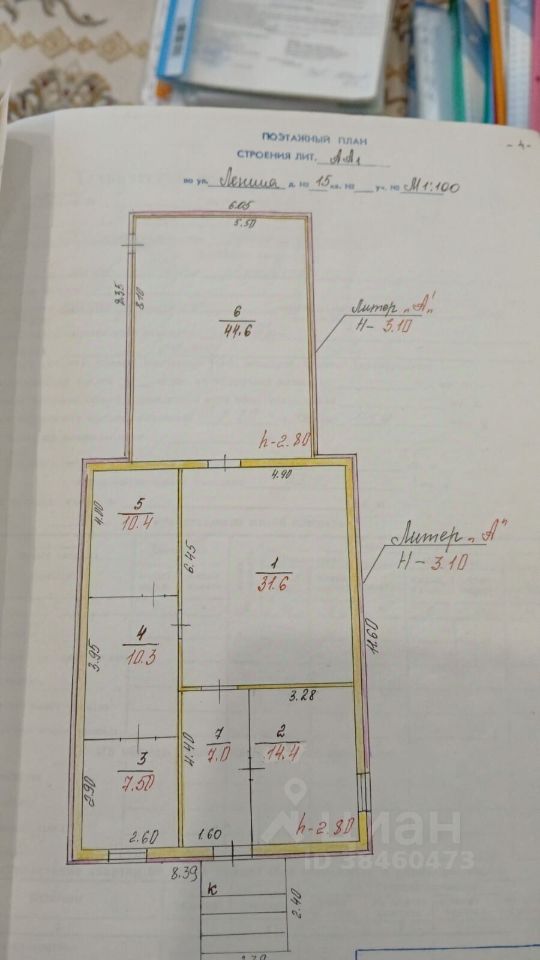 ПОЭТАЖНЫЙ ПЛАН
- 4 -
СТРОЕНИЯ ЛИТ. АА1
по ул. Ленина д. № 15 кв. № уч. № М 1:100
6.05
5.50
2.35
8.10
6
44.6
Литер „А'"
Н- 3.10
h-2.80
4.90
4.00
5
10.4
6.45
1
31.6
Литер „А"
Н- 3.10
11.60
3.95
4
10.3
3.28
2.90
3
7.50
4.40
7
7.0
2
14.4
2.60
1.60
h-2.80
8.39
К
2.40
циан
ID 38460473